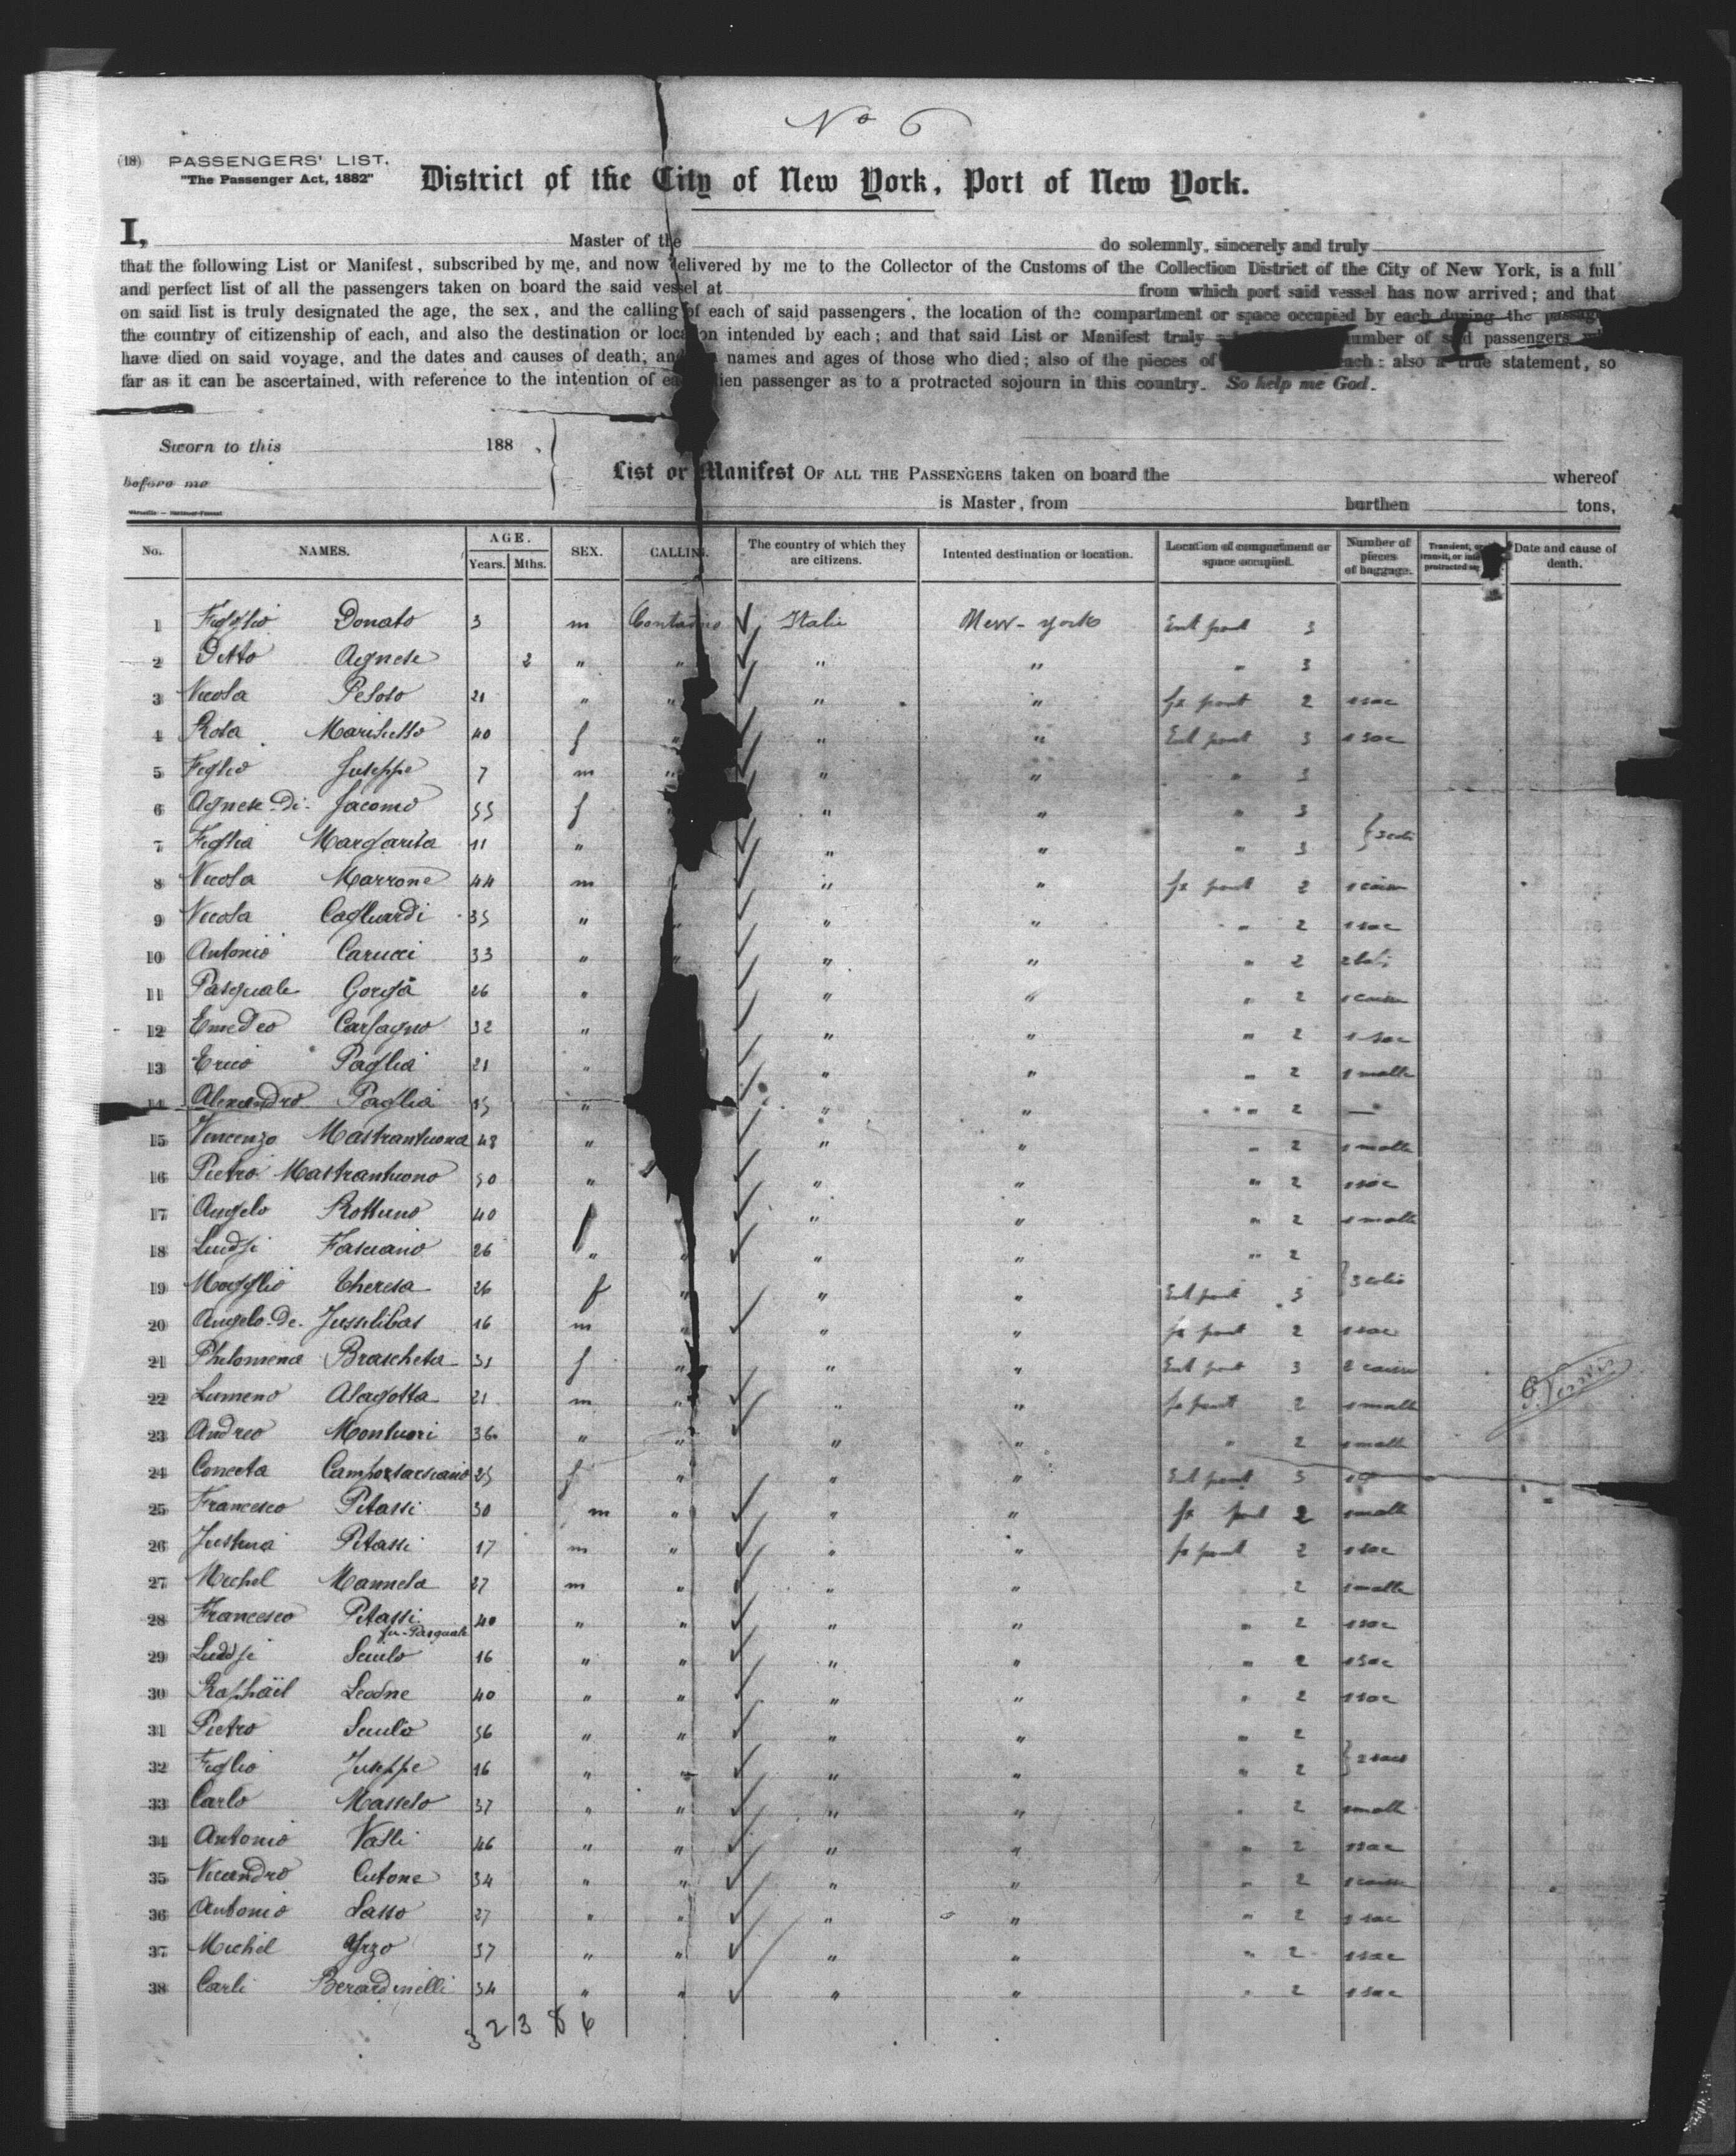 No 6
(18) PASSENGERS' LIST.
"The Passenger Act, 1882"
District of the City of New York, Port of New York.
I, Master of the do solemnly, sincerely and truly
that the following List or Manifest, subscribed by me, and now delivered by me to the Collector of the Customs of the Collection District of the City of New York, is a full
and perfect list of all the passengers taken on board the said vessel at from which port said vessel has now arrived; and that
on said list is truly designated the age, the sex, and the calling of each of said passengers, the location of the compartment or space occupied by each during the passage
the country of citizenship of each, and also the destination or location intended by each; and that said List or Manifest truly number of said passengers
have died on said voyage, and the dates and causes of death, and names and ages of those who died; also of the pieces of each: also a true statement, so
far as it can be ascertained, with reference to the intention of each alien passenger as to a protracted sojourn in this country. So help me God.
Sworn to this 188 ,
before me
List or Manifest OF ALL THE PASSENGERS taken on board the whereof
is Master, from burthen tons,
No. NAMES. AGE. Years. Mths. SEX. CALLING. The country of which they are citizens. Intented destination or location. Location of compartment or space occupied. Number of pieces of baggage. Date and cause of death.
1 Figlio Donato 3 m Contadino Italie New-york Ent pont 3
2 Ditto Agnese 2 " " " " " 3
3 Nicola Peloso 21 " " " " fx pont 2 1 sac
4 Rosa 40 f " " " Ent pont 3 1 sac
5 Figlio Juseppe 7 m " " " " 3
6 Agnese-di-Jacomo 55 f " " " 3
7 Figlia Margarita 11 " " " " 3
8 Nicola Marrone 44 m " " " fx pont 2 1 caisse
9 Nicola Cagliardi 35 " " " " " 2 1 sac
10 Antonio Carucci 33 " " " " " 2
11 Pasquale Gorga 26 " " " " 2 1 caisse
12 Emedeo Carfagno 32 " " " " 2 1 sac
13 Erico Paglia 21 " " " " 2 1 malle
14 Alexandro Paglia " " " " 2 —
15 Vincenzo Mastrantuono 48 " " " " 2 1 malle
16 Pietro Mastrantuono 50 " " " " 2 1 sac
17 Angelo 40 " " " 2 1 malle
18 Luidgi Fasciano 26 " " " " " 2
19 Moglio Theresa 26 f " " " Ent pont 3 3 colis
20 Angelo-de- 16 m " " " fx pont 2 1 sac
21 Philomena Brascheta 31 f " " " Ent pont 3 2 caisse
22 Lumeno Alagotta 21 m " " " fx pont 2 1 malle
23 Andreo Montuori 36 " " " " " 2 1 malle
24 25 f " " " Ent pont 3
25 Francesco Pitassi 30 m " " " fx pont 2 1 malle
26 Pitassi 17 m " " " fx pont 2 1 sac
27 Michel Manneta 27 m " " " 2 1 malle
28 Francesco Pitassi fu-Pasquale 40 " " " " " 2 1 sac
29 Luidgi Sciulo 16 " " " " " 2 1 sac
30 Raphaël Leodne 40 " " " " " 2 1 sac
31 Pietro Sciulo 36 " " " " " 2
32 Figlio Juseppe 16 " " " " " 2 2 sacs
33 Carlo Masselo 37 " " " " " 2 1 malle
34 Antonio Valli 46 " " " " " 2 1 sac
35 Nicandro Cutone 34 " " " " " 2 1 caisse
36 Antonio Lasso 27 " " " " " 2 1 sac
37 Michel 37 " " " " " 2 1 sac
38 Carli Berardinelli 34 " " " " " 2 1 sac